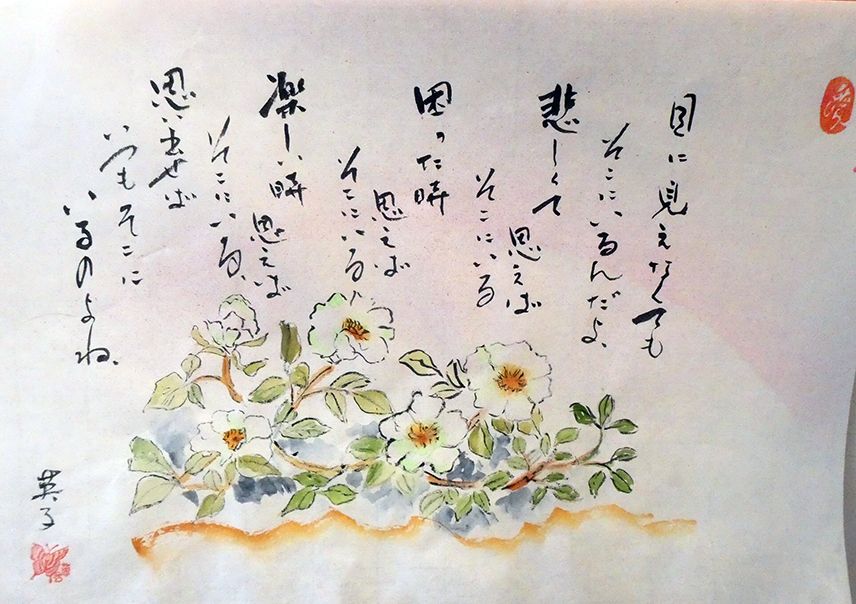 目に見えなくても
そこにいるんだよ、
悲しくて 思えば
そこにいる
困った時 思えば
そこにいる
楽しい時 思えば
そこにいる、
思い出せば
いつもそこに
いるのよね、
英子
愛